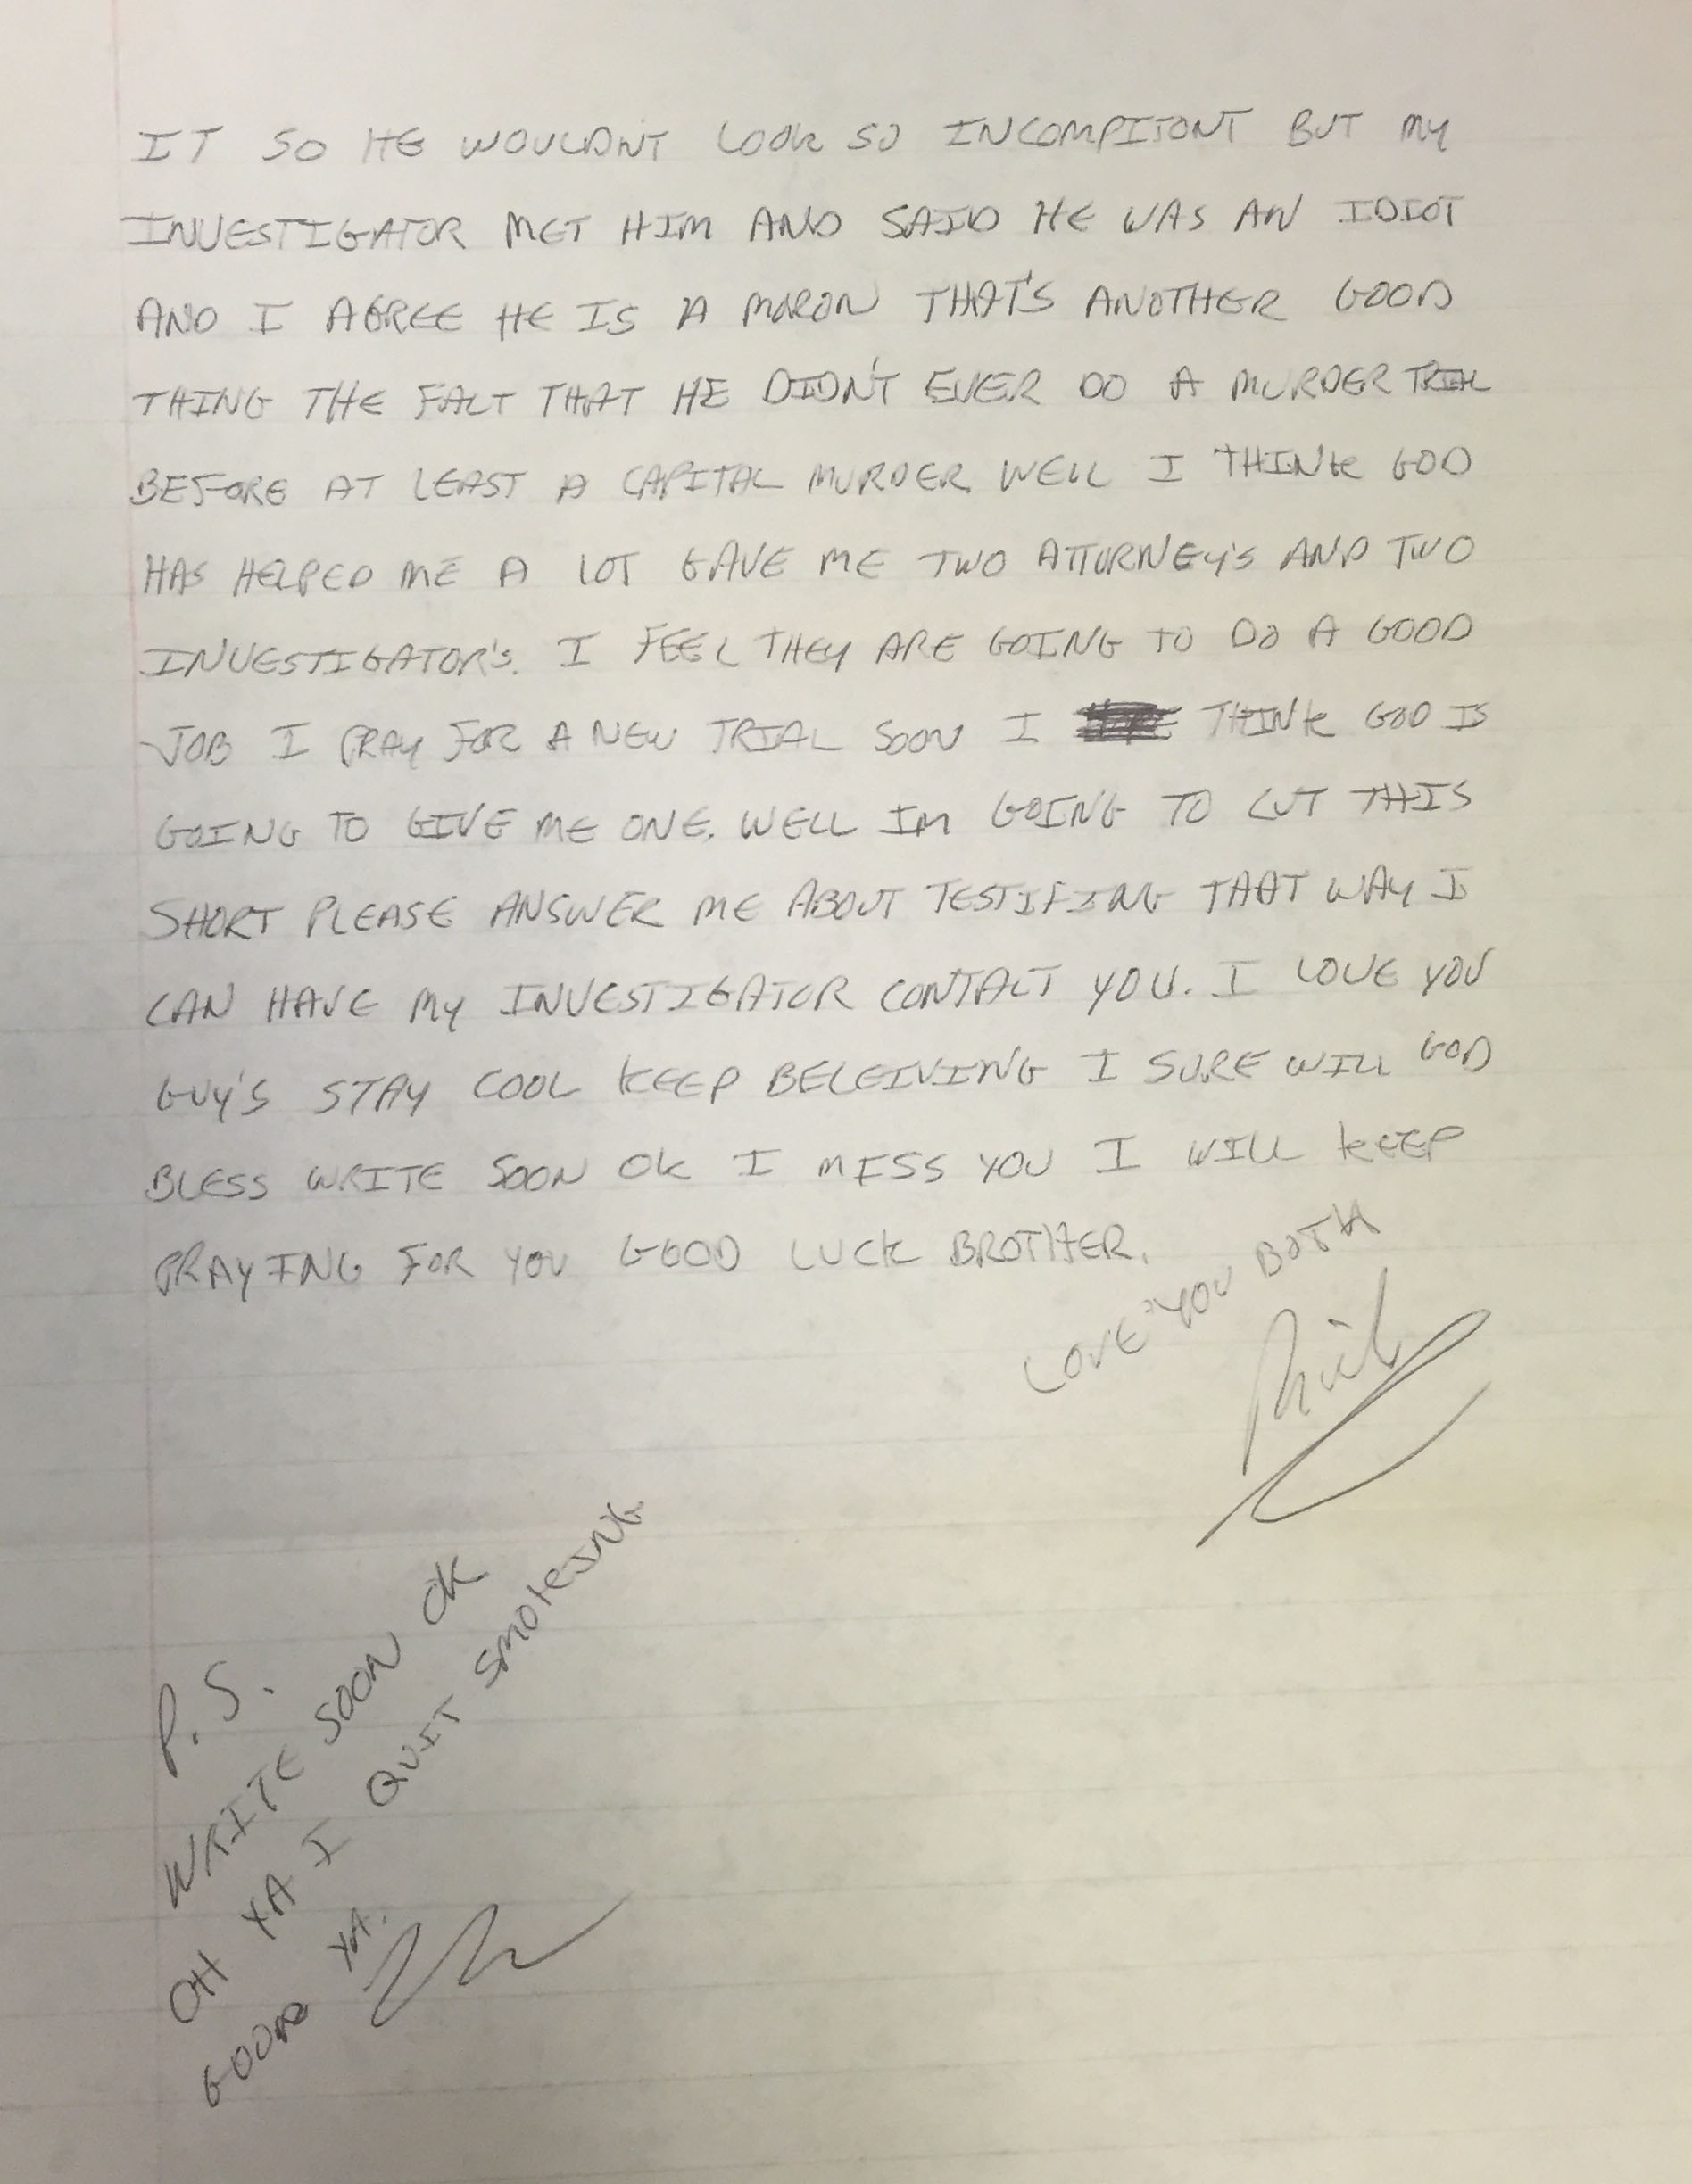 IT SO HE WOULDN'T LOOK SO INCOMPITONT BUT MY
INVESTIGATOR MET HIM AND SAID HE WAS AN IDIOT
AND I AGREE HE IS A MORON THAT'S ANOTHER GOOD
THING THE FACT THAT HE DIDN'T EVER DO A MURDER TRIAL
BEFORE AT LEAST A CAPITAL MURDER. WELL I THINK GOD
HAS HELPED ME A LOT GAVE ME TWO ATTORNEY'S AND TWO
INVESTIGATOR'S. I FEEL THEY ARE GOING TO DO A GOOD
JOB I PRAY FOR A NEW TRIAL SOON I THINK GOD IS
GOING TO GIVE ME ONE. WELL IM GOING TO CUT THIS
SHORT PLEASE ANSWER ME ABOUT TESTIFING THAT WAY I
CAN HAVE MY INVESTIGATOR CONTACT YOU. I LOVE YOU
GUY'S STAY COOL KEEP BELEIVING I SURE WILL GOD
BLESS WRITE SOON OK I MISS YOU I WILL KEEP
PRAYING FOR YOU GOOD LUCK BROTHER.
LOVE YOU BOTH
P.S.
WRITE SOON OK
OH YA I QUIT SMOKEING
YA.